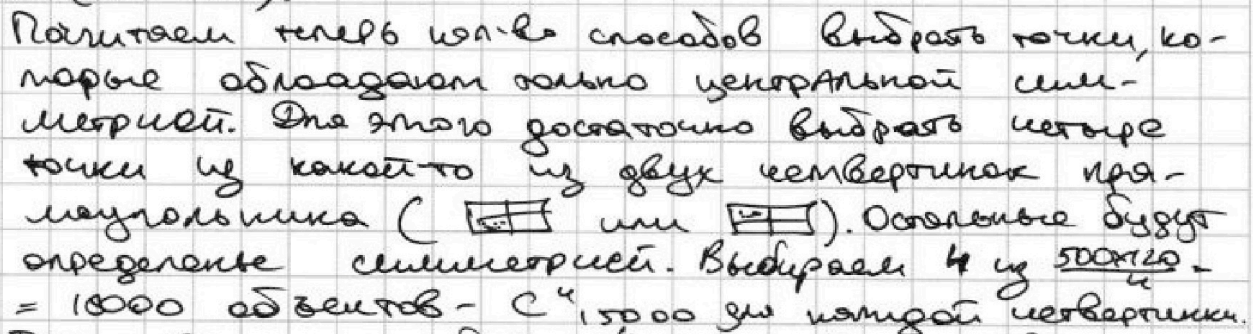 Посчитаем теперь кол-во способов выбрать точки, ко-
торые обладают только центральной сим-
метрией. Для этого достаточно выбрать четыре
точки из какой-то из двух четвертинок пря-
моугольника ( или ). Остальные будут
определены симметрией. Выбираем 4 из 500×120/4 -
= 15000 объектов - C⁴15000 для каждой четвертинки.